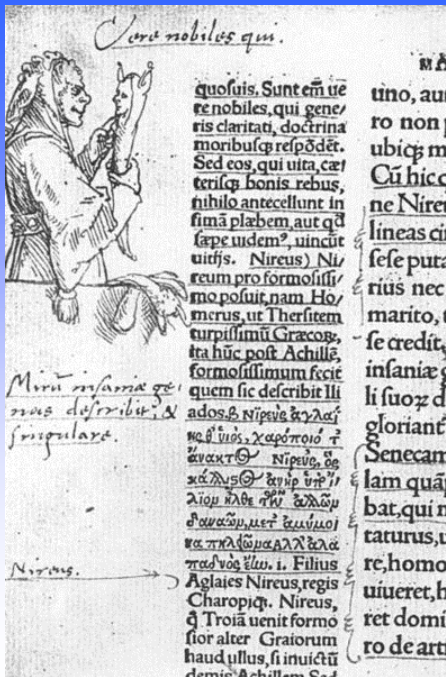 Vere nobiles qui.
quosuis. Sunt em̄ ue
re nobiles, qui gene/
ris claritati, doctrina
moribusq; respōdēt.
Sed eos, qui uita, cæt
terisq; bonis rebus,
nihilo antecellunt in
fimā plæbem, aut qd
sæpe uidemꝰ, uincūt
uitijs. Nireus) Ni/
reum pro formosissi/
mo posuit, nam Ho/
merus, ut Thersitem
turpissimū Græcorꝝ,
ita hūc post Achillē,
formosissimum fecit
quem sic describit Ili
ados. β Νιρεὺς ἀγλαΐ
ης θ' υἱὸς, χαρόποιό τ'
ἄνακτος Νιρεὺς, ὃς
κάλλιστος ἀνὴρ ὑπὸ ἴ/
λιον ἦλθε τῶν ἄλλων
δαναῶν, μετ' ἀμύμο
να πηλείωνα ἀλλ' ἀλα
παδνὸς ἔην. i. Filius
Aglaies Nireus, regis
Charopiq;. Nireus,
q̄ Troiā uenit formo
sior alter Graiorum
haud ullus, si inuictū
demis Achillem Sed
Mirū insaniæ ge/
nus describit, &
singulare.
Nireus.
MA
uno, aut
ro non p
ubiq; m
Cū hic c
ne Nireu
lineas cir
sese puta
rius nec
marito, t
se credit,
insaniæ g
li suoꝝ d
gloriant
Senecam
lam quāp
bat, qui n
taturus, u
re, homo
uiueret, h
ret domi
ro de arti